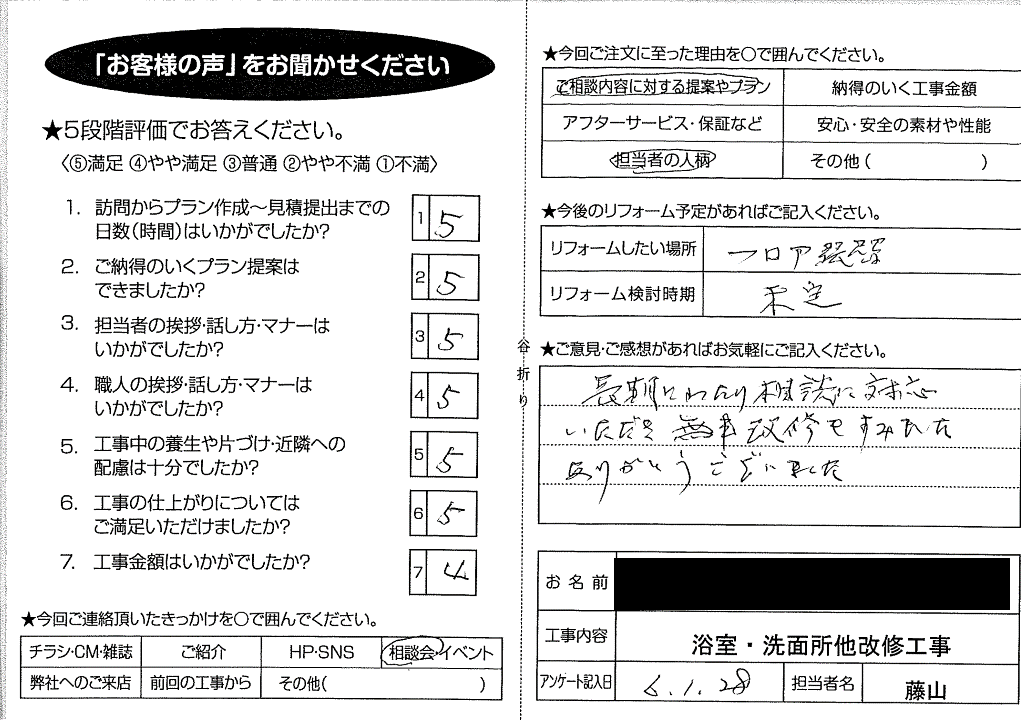 「お客様の声」をお聞かせください
★5段階評価でお答えください。
〈⑤満足 ④やや満足 ③普通 ②やや不満 ①不満〉
1. 訪問からプラン作成～見積提出までの
日数(時間)はいかがでしたか?
1 5
2. ご納得のいくプラン提案は
できましたか?
2 5
3. 担当者の挨拶・話し方・マナーは
いかがでしたか?
3 5
4. 職人の挨拶・話し方・マナーは
いかがでしたか?
4 5
5. 工事中の養生や片づけ・近隣への
配慮は十分でしたか?
5 5
6. 工事の仕上がりについては
ご満足いただけましたか?
6 5
7. 工事金額はいかがでしたか?
7 4
★今回ご連絡頂いたきっかけを○で囲んでください。
チラシ・CM・雑誌 ご紹介 HP・SNS 相談会・イベント
弊社へのご来店 前回の工事から その他( )
谷折り
★今回ご注文に至った理由を○で囲んでください。
ご相談内容に対する提案やプラン 納得のいく工事金額
アフターサービス・保証など 安心・安全の素材や性能
担当者の人柄 その他( )
★今後のリフォーム予定があればご記入ください。
リフォームしたい場所 フロア
リフォーム検討時期 未定
★ご意見・ご感想があればお気軽にご記入ください。
長期にわたり相談に対応
いただき無事改修をすみました
ありがとうございました
お名前
工事内容 浴室・洗面所他改修工事
アンケート記入日 6.1.28 担当者名 藤山